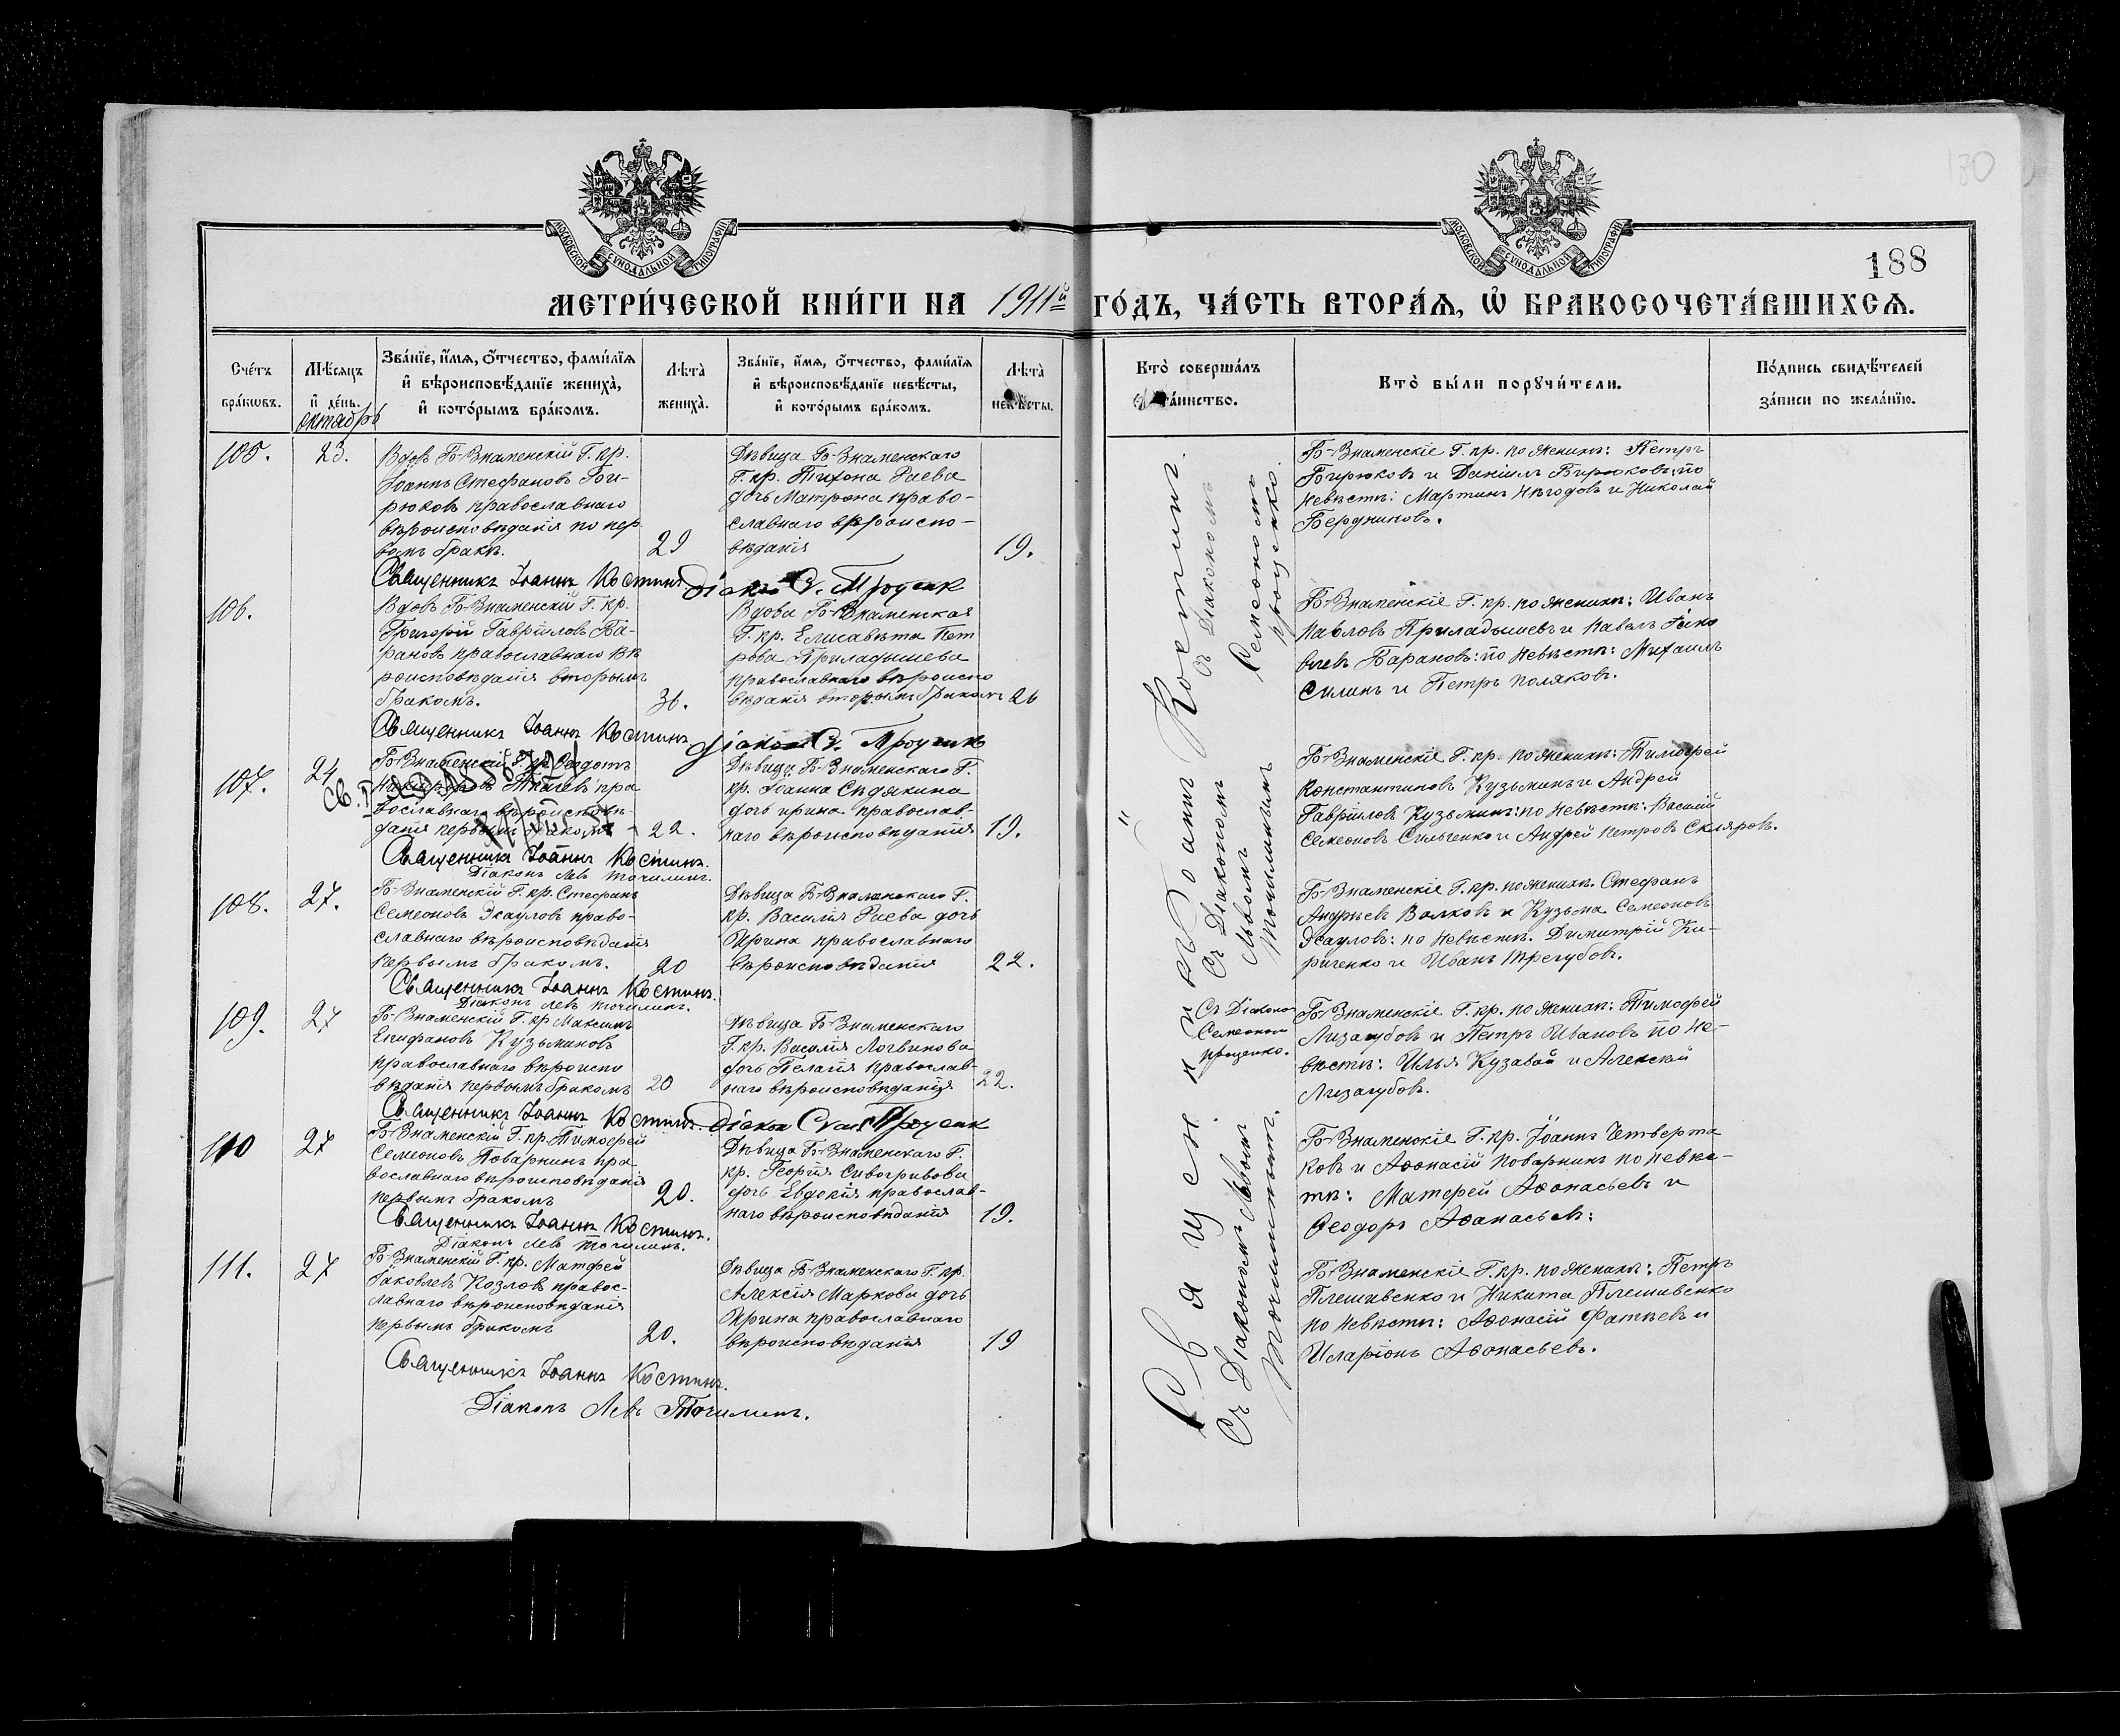 МОСКОВСКОЙ СѴНОДАЛЬНОЙ ТИПОГРАФІИ
МОСКОВСКОЙ СѴНОДАЛЬНОЙ ТИПОГРАФІИ
180
188
МЕТРИ́ЧЕСКОЙ КНИ́ГИ НА 1911й ГО́ДЪ, ЧА́СТЬ ВТОРА́Ѧ, Ѡ҆ БРАКОСОЧЕТА́ВШИХСѦ.
Сче́тъ бра́кѡвъ.
Мѣ́сѧцъ и҆ де́нь.
Зва́нїе, и҆́мѧ, ѻ҆́тчество, фами́лїѧ
и҆ вѣроисповѣ́данїе жениха̀,
и҆ кото́рымъ бра́комъ.
Лѣта̀ жениха̀.
Зва́нїе, и҆́мѧ, ѻ҆́тчество, фами́лїѧ
и҆ вѣроисповѣ́данїе невѣ́сты,
и҆ кото́рымъ бра́комъ.
Лѣта̀ невѣ́сты.
Кто̀ соверша́лъ та́инство.
Кто̀ бы́ли порꙋчи́тели.
По́дпись свидѣ́телей
за́писи по жела́нїю.
октябрь
105.
23.
Вдовъ Б-Знаменскій Г. кр.
Іоаннъ Стефановъ Би-
рюковъ православнаго
вѣроисповѣданія по пер
вомъ бракѣ.
29
Дѣвица Б-Знаменскаго
Г. кр. Тихона Раева
дочь Матрона право-
славнаго вѣроиспо-
вѣданія
19.
Б-Знаменскіе Г. кр. по женихѣ: Петръ
Бирюковъ и Даніилъ Бирюковъ: по
невѣстѣ: Мартинъ Нѣгодовъ и Николай
Бердниковъ.
Священникъ Іоаннъ Костинъ
106.
Вдовъ Б-Знаменскій Г. кр.
Григорій Гавріиловъ Ба-
рановъ православнаго вѣ
роисповѣданія вторымъ
бракомъ.
31.
Вдова Б-Знаменская
Г. кр. Елисавета Пет
рова Приладышева
православнаго вѣроиспо
вѣданія вторымъ бракомъ
26
Б-Знаменскіе Г. кр. по женихѣ: Иванъ
Павловъ Приладышевъ и Павелъ Іако
влевъ Барановъ: по невѣстѣ: Михаилъ
Силинъ и Петръ Поляковъ.
Священникъ Іоаннъ Костинъ
107.
24
Б-Знаменскій Г. кр. Ѳеодотъ
Ткачевъ пра
вославнаго вѣроисповѣ-
данія первымъ бракомъ
22.
Дѣвица Б-Знаменскаго Г.
кр. Іоанна Сѣдякина
дочь Ирина православ-
наго вѣроисповѣданія
19.
Б-Знаменскіе Г. кр. по женихѣ: Тимоѳей
Константиновъ Кузьминъ и Андрей
Гавріиловъ Кузьминъ: по невѣстѣ: Василій
Семеоновъ Сильченко и Андрей Петровъ Скляровъ.
Священникъ Іоаннъ Костинъ.
Діаконъ Левъ Точилинъ.
108.
27.
Б-Знаменскій Г. кр. Стефанъ
Семеоновъ Эсауловъ право-
славнаго вѣроисповѣданія
первымъ бракомъ.
20
Дѣвица Б-Знаменскаго Г.
кр. Василія Раева дочь
Ирина православнаго
вѣроисповѣданія
22.
Б-Знаменскіе Г. кр. по женихѣ. Стефанъ
Андреевъ Волковъ и Кузьма Семеоновъ
Эсауловъ: по невѣстѣ. Димитрій Ки-
риченко и Иванъ Трегубовъ.
Священникъ Іоаннъ Костинъ.
Діаконъ Левъ Точилинъ.
109.
27
Б-Знаменскій Г. кр Максимъ
Епифановъ Кузьминовъ
православнаго вѣроиспо
вѣданія первымъ бракомъ
20
Дѣвица Б-Знаменскаго
Г. кр. Василія Логвинова
дочь Пелагія православ-
наго вѣроисповѣданія
22.
Съ Діакономъ
Семеономъ
Проценко.
Б-Знаменскіе Г. кр. по женихѣ: Тимоѳей
Лизагубовъ и Петръ Ивановъ по не-
вѣстѣ: Илья Кузавой и Алексѣй
Лизагубовъ.
Священникъ Іоаннъ Костинъ.
110
27
Б-Знаменскій Г. кр. Тимоѳей
Семеоновъ Поварнинъ пра
вославнаго вѣроисповѣданія
первымъ бракомъ
20.
Дѣвица Б-Знаменскаго Г.
кр. Георгія Сивогривова
дочь Евдокія православ-
наго вѣроисповѣданія
19.
Б-Знаменскіе Г. кр. Іоаннъ Четверта
ковъ и Аѳонасій Поварнинъ по невѣс-
тѣ: Матѳей Аѳонасьевъ и
Ѳеодоръ Аѳанасьевъ:
Священникъ Іоаннъ Костинъ.
Діаконъ Левъ Точилинъ.
111.
27
Б-Знаменскій Г. кр. Матѳей
Іаковлевъ Козловъ правос-
лавнаго вѣроисповѣданія
первымъ бракомъ
20.
Дѣвица Б-Знаменскаго Г. кр.
Алексія Маркова дочь
Ирина православнаго
вѣроисповѣданія
19
Б-Знаменскіе Г. кр. по женихѣ: Петръ
Плешивенко и Никита Плешивенко
по невѣстѣ: Аѳонасій Фатѣевъ и
Иларіонъ Аѳонасьевъ.
Священникъ Іоаннъ Костинъ.
Діаконъ Левъ Точилинъ.
Священникъ Іоаннъ Костинъ.
Съ Діакономъ
Семеономъ
Проценко.
Съ Діакономъ
Львомъ
Точилинымъ
Съ Діакономъ Львомъ
Точилинымъ.